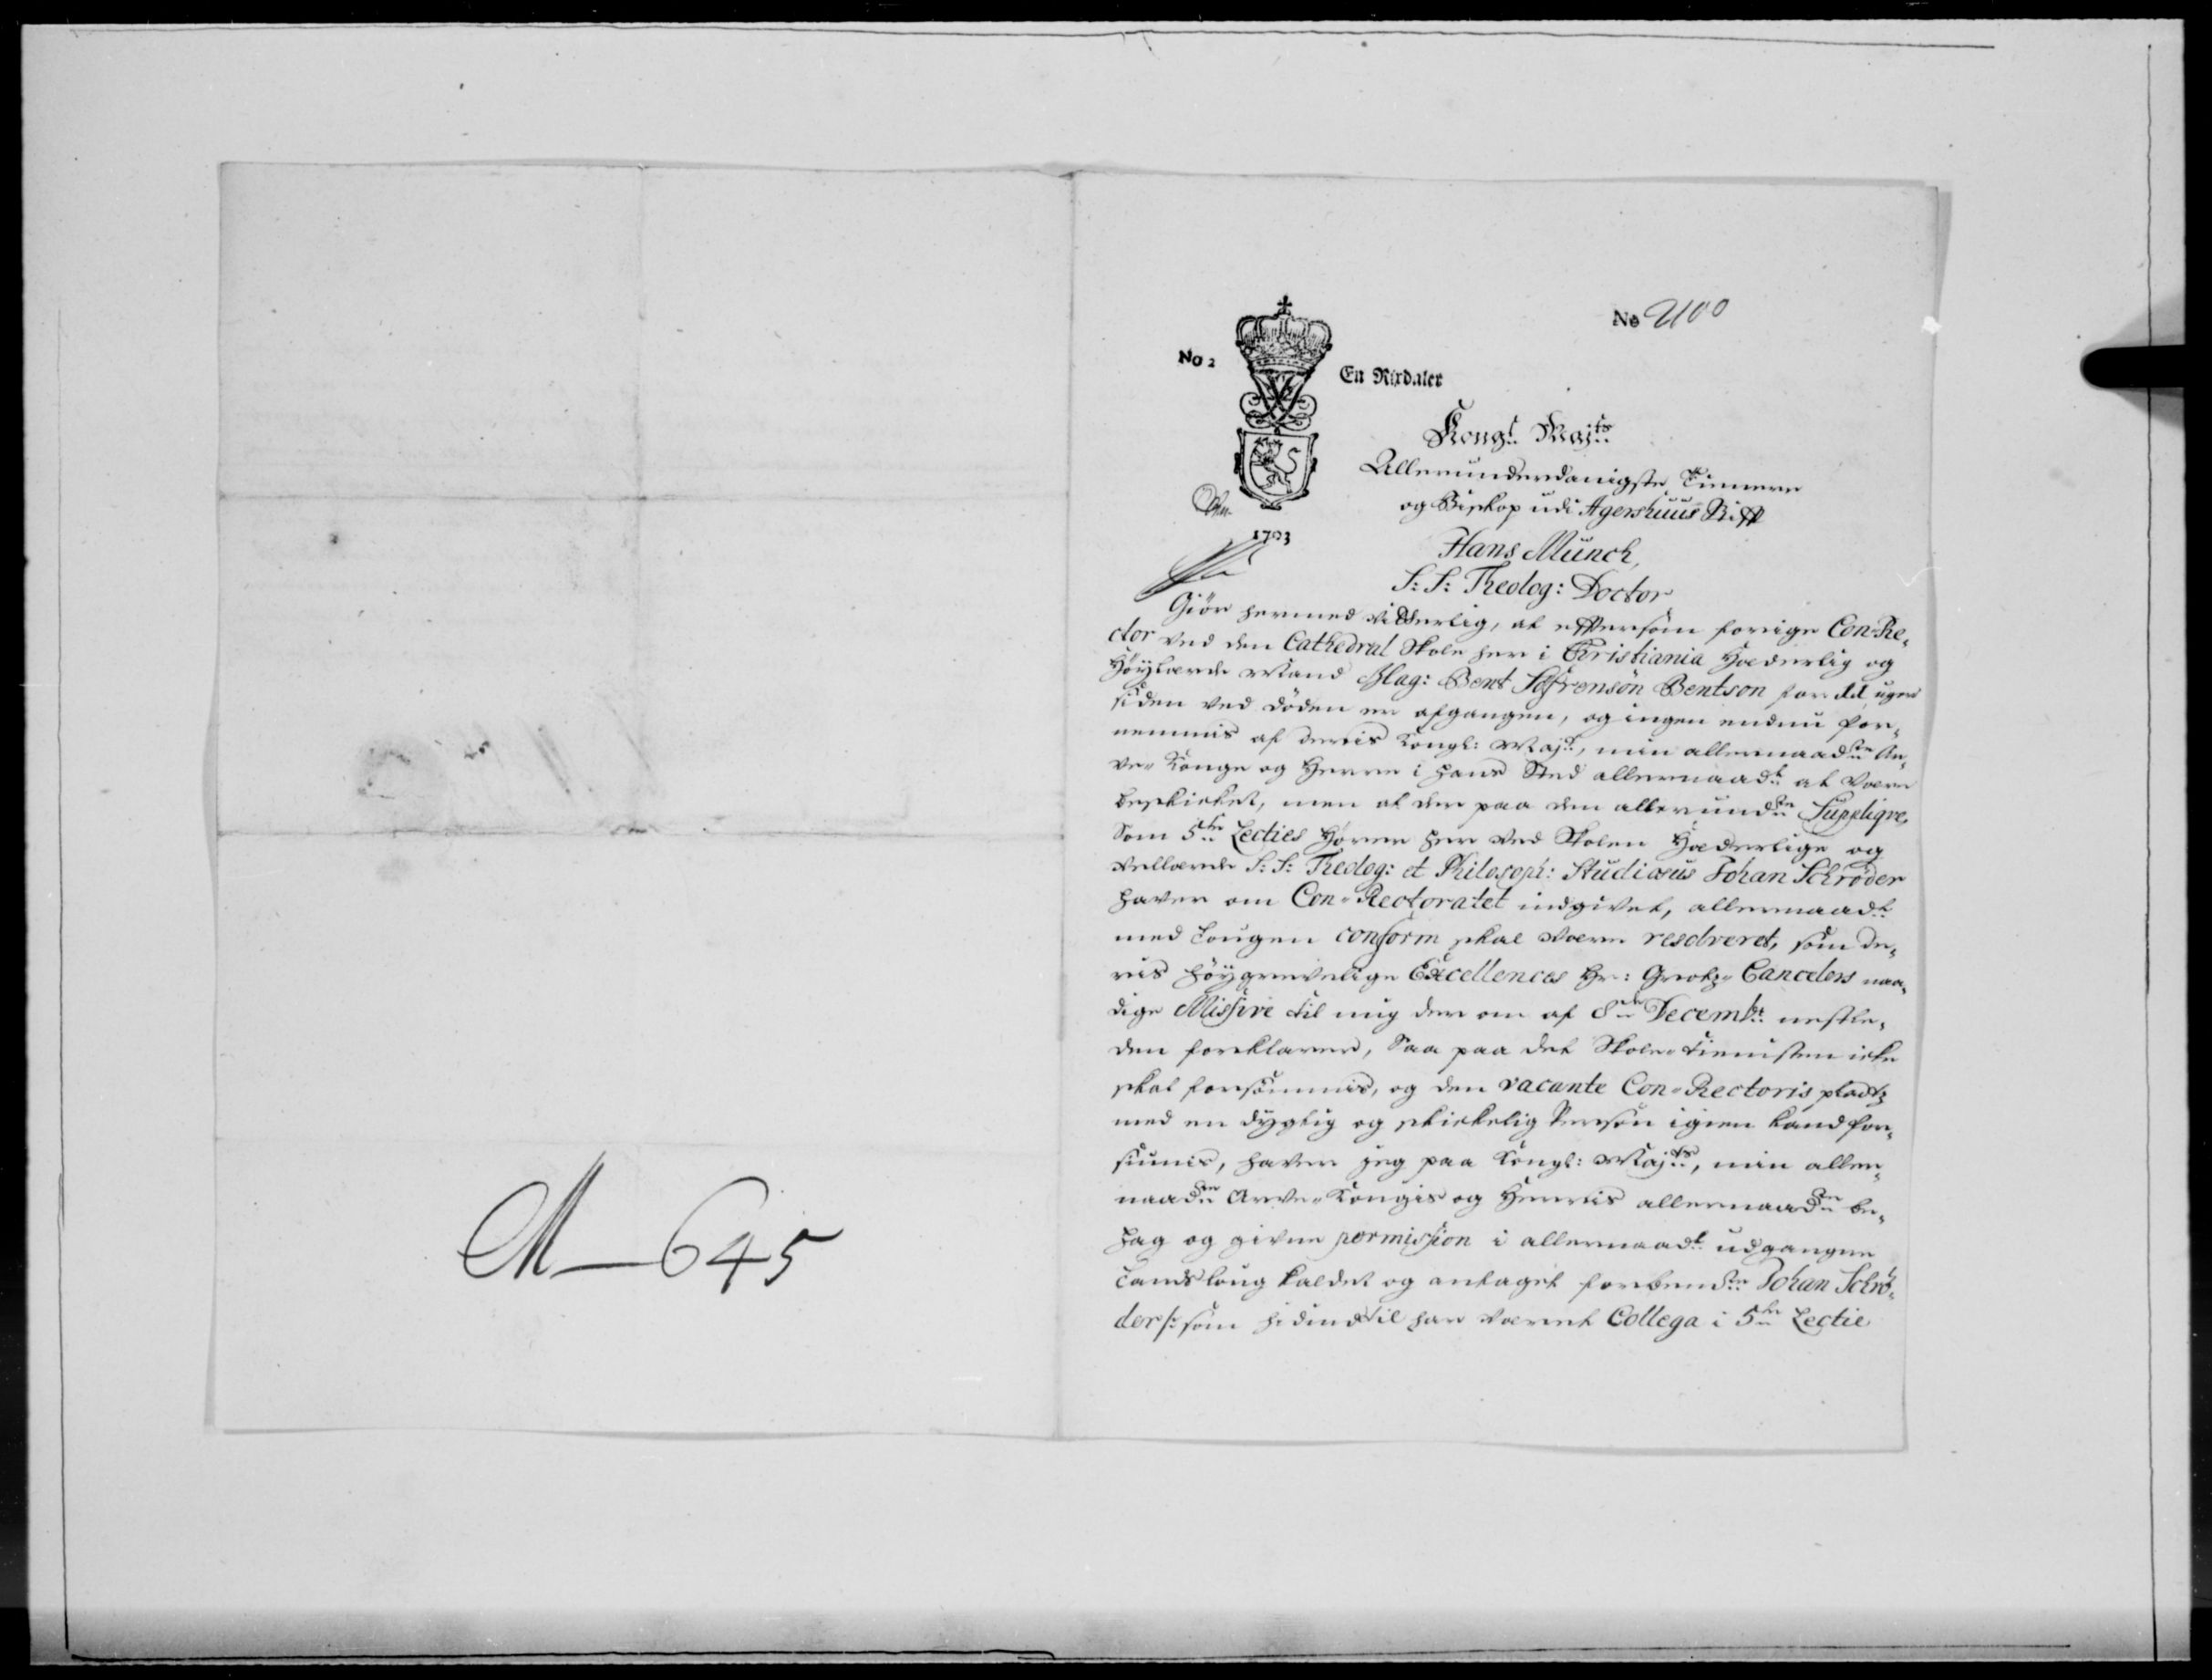 No 2100
No 2
En Rixdaler
1703
Kongl: Majts
Allerunderdanigste Tienere
og Biskop udi Agershuus Stift
Hans Munch,
S: S: Theolog: Doctor
Giör hermed vitterlig, at eftersom forrige Con-Re„
ctor ved den Cathedral Skole her i Christiania Hæderlig og
Höylærde Mand Mag: Bent Bentson for uger
siden ved döden er afgangen, og ingen endnu for„
nemmis af Derris Kongl: Majt, min allernaadste Ar„
ve„ Konge og Herre i hans Sted allernaadt at være
beskicket, men at der paa den allerundste Suppliqve,
Som 5te Lecties Hörer her ved Skolen Hæderlige og
Vellærde S: S: Theolog: et Philosoph: Studiosus Johan Schröder
haver om Con„Rectoratet indgivet, allernaadt
med Lougen conform skal være resolveret, som de„
ris höygrevelige Excellences Hr: Cancelers naa„
dige Missive til mig der om af 8de Decembr nestle„
den forklarer, Saa paa det Skole„tienisten icke
skal forsömmis, og den vacante Con„Rectoris pladtz
med en dygtig og skickelig Person igien kand for„
siunis, haver jeg paa Kongl: Majts, min aller„
naadste Arve„Kongis og Herris allernaadste be„
hag og givne permission i allernaadt udgangne
Lands loug kaldet og antaget forbemte Johan Schrö„
der /: som hidindtil har været Collega i 5te Lectie
M-645